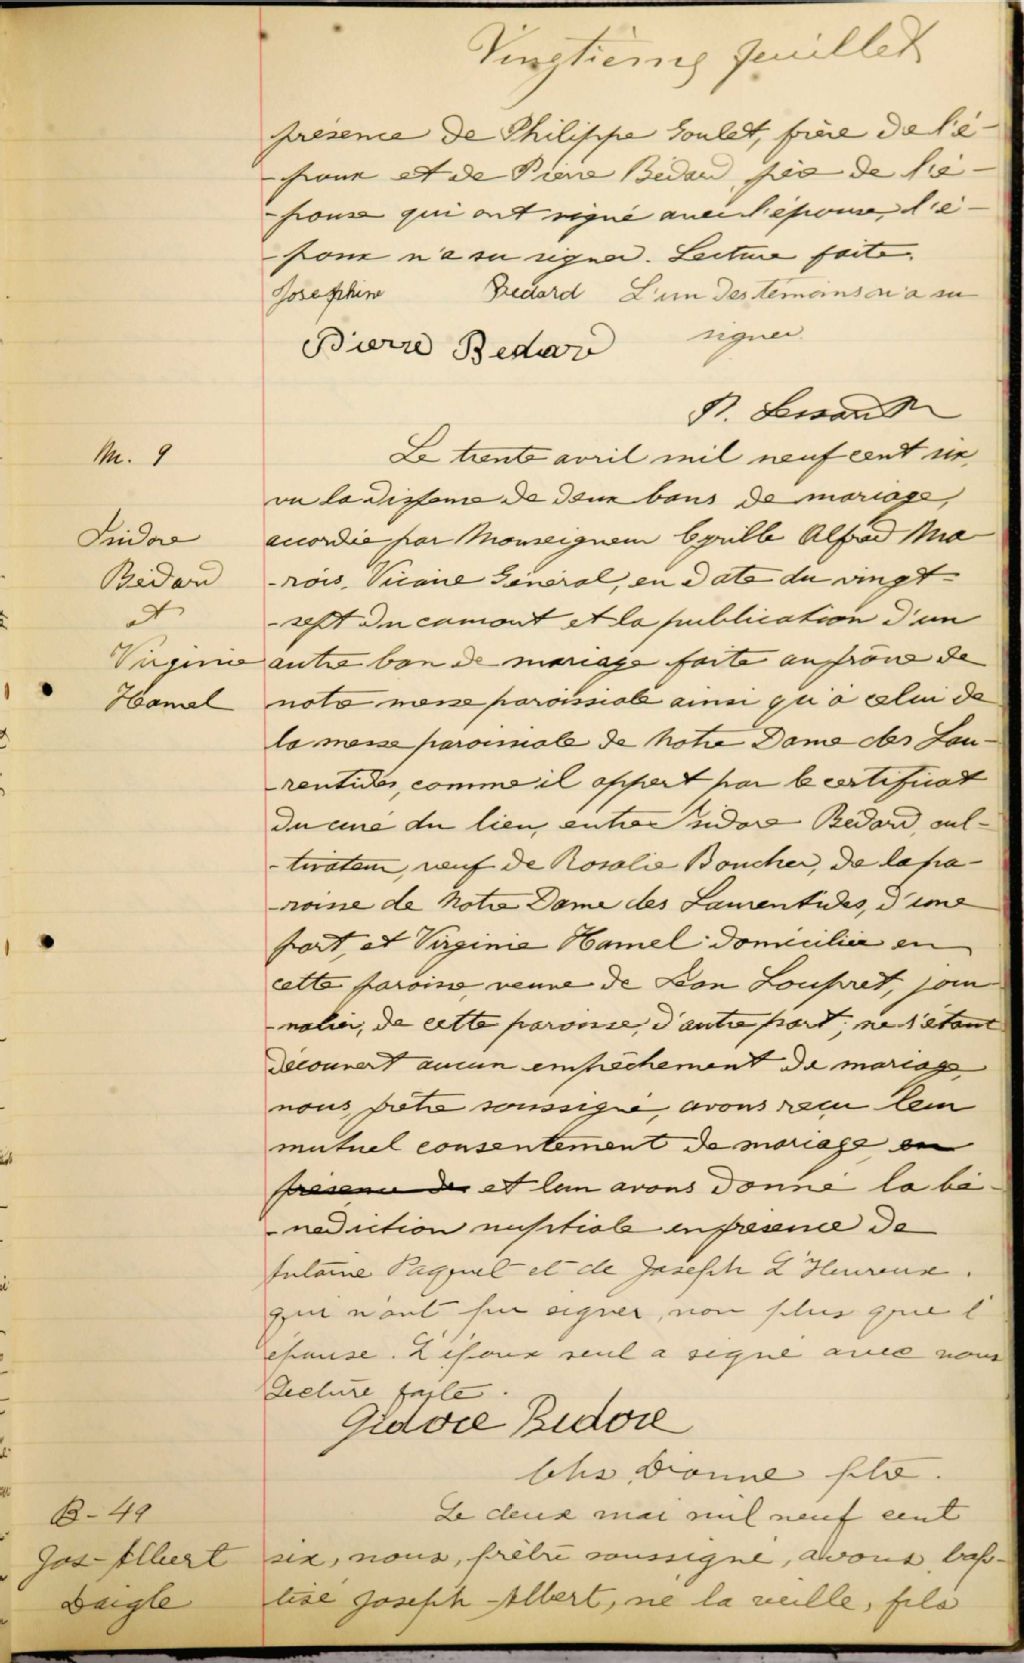 Vingtième feuillet
présence de Philippe Goulet, frère de l'é-
-poux et de Pierre Bédard, père de l'é-
-pouse qui ont signé avec l'épouse, l'é-
-poux n'a su signer. Lecture faite.
Josephine Bedard L'un des témoins n'a su
signer.
Pierre Bedard
M. 9
Le trente avril mil neuf cent six,
vu la dispense de deux bans de mariage,
Isidore
accordée par Monseigneur Cyrille Alfred Ma-
Bédard
-rois, Vicaire Général, en date du vingt-
et
-sept du courant et la publication d'un
Virginie
autre ban de mariage faite au prône de
Hamel
notre messe paroissiale ainsi qu'à celui de
la messe paroissiale de Notre Dame des Lau-
-rentides, comme il appert par le certificat
du curé du lieu, entre Isidore Bédard, cul-
-tivateur, veuf de Rosalie Boucher, de la pa-
-roisse de Notre Dame des Laurentides, d'une
part, et Virginie Hamel domiciliée en
cette paroisse, veuve de Léon Loupret, jour-
-nalier, de cette paroisse, d'autre part; ne s'étant
découvert aucun empêchement de mariage,
nous, prêtre soussigné, avons reçu leur
mutuel consentement de mariage en
présence de et leur avons donné la bé-
-nédiction nuptiale en présence de
Antoine Paquet et de Joseph L'Heureux.
qui n'ont pu signer, non plus que l'
épouse. L'époux seul a signé avec nous
Lecture faite.
Gidore Bedore
Chs Dionne ptre.
B-49
Le deux mai mil neuf cent
Jos-Albert
six, nous, prêtre soussigné, avons bap-
Daigle
tisé Joseph-Albert, né la veille, fils